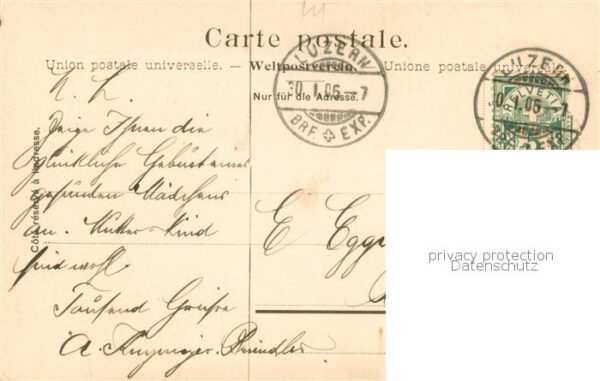 Carte postale.
Union postale universelle. — Weltpostverein. — Unione postale universale
Nur für die Adresse.
Côté réservé à l'adresse.
LUZERN
30. I. 06 – 7
BRF. EXP.
LUZERN
30. I. 06 – 7
BRF. EXP.
HELVETIA
Zeige Ihnen die
glückliche Geburt eines
gesunden Mädchens
an. Mutter & Kind
sind wohl.
Tausend Grüsse
A.
E
privacy protection
Datenschutz